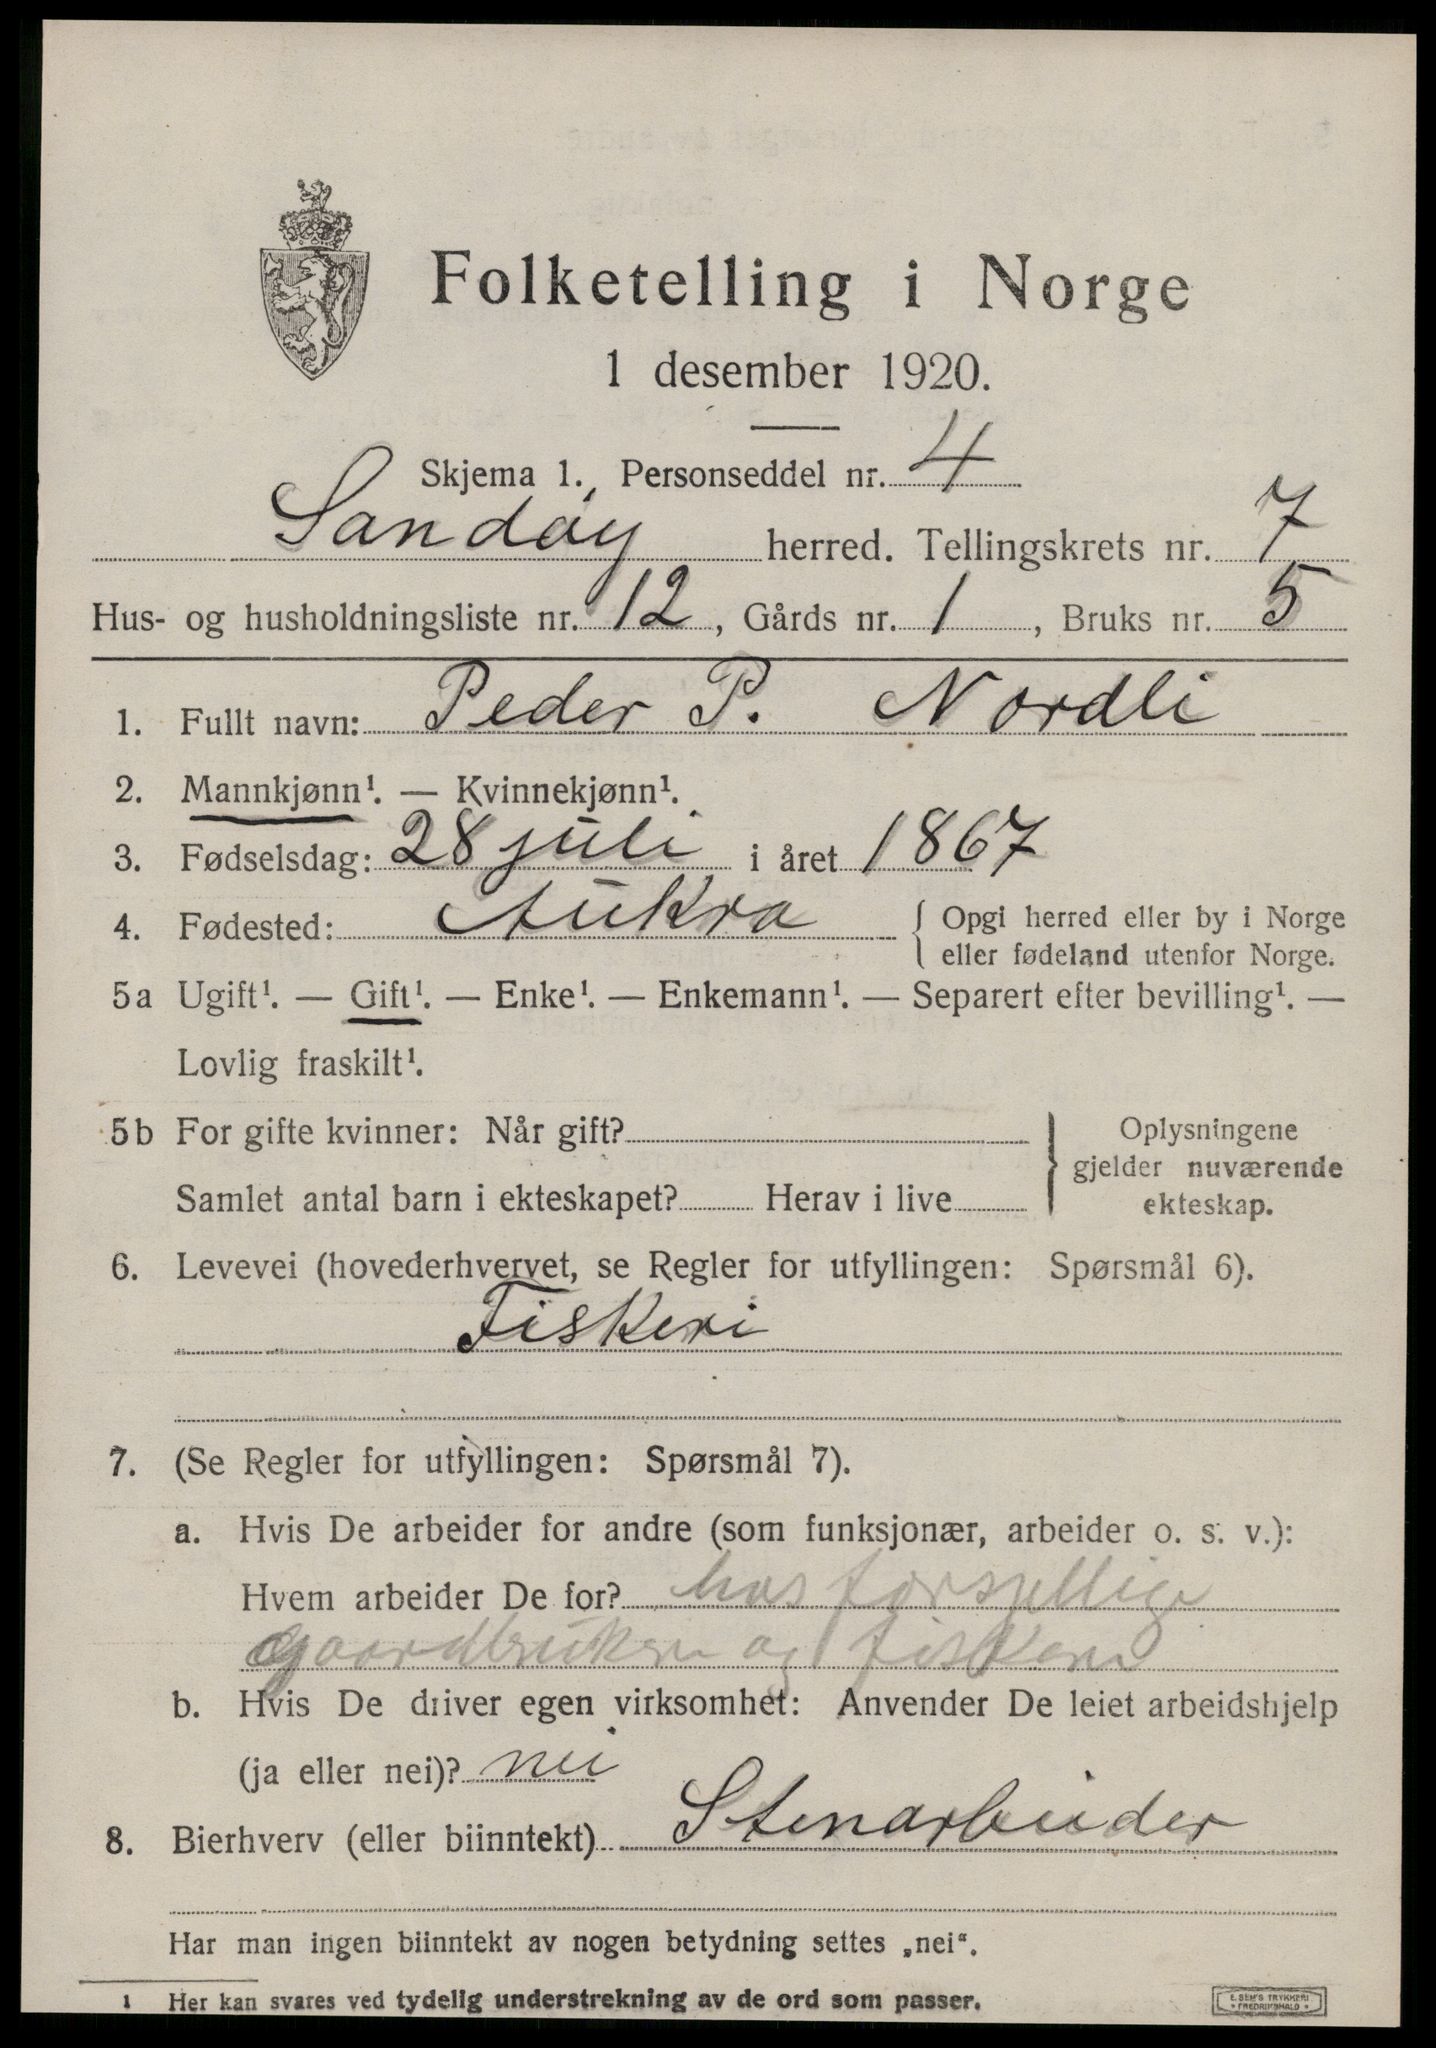 Folketelling i Norge
1 desember 1920.
Skjema 1. Personseddel nr. 4
Sandøy herred. Tellingskrets nr. 7
Hus- og husholdningsliste nr. 12, Gårds nr. 1, Bruks nr. 5
1. Fullt navn: Peder P. Nordli
2. Mannkjønn¹. — Kvinnekjønn¹.
3. Fødselsdag: 28 juli i året 1867
4. Fødested: Aukra { Opgi herred eller by i Norge
eller fødeland utenfor Norge.
5a Ugift¹. — Gift¹. — Enke¹. — Enkemann¹. — Separert efter bevilling¹. —
Lovlig fraskilt¹.
5b For gifte kvinner: Når gift?
Samlet antal barn i ekteskapet? Herav i live
Oplysningene
gjelder nuværende
ekteskap.
6. Levevei (hovederhvervet, se Regler for utfyllingen: Spørsmål 6).
Fiskeri
7. (Se Regler for utfyllingen: Spørsmål 7).
a. Hvis De arbeider for andre (som funksjonær, arbeider o. s. v.):
Hvem arbeider De for? hos forsjellige
gaardbrukere og fiskere
b. Hvis De driver egen virksomhet: Anvender De leiet arbeidshjelp
(ja eller nei)? nei
8. Bierhverv (eller biinntekt) Stenarbeider
Har man ingen biinntekt av nogen betydning settes „nei“.
1 Her kan svares ved tydelig understrekning av de ord som passer.
E. SEM'S TRYKKERI
• FREDRIKSHALD •